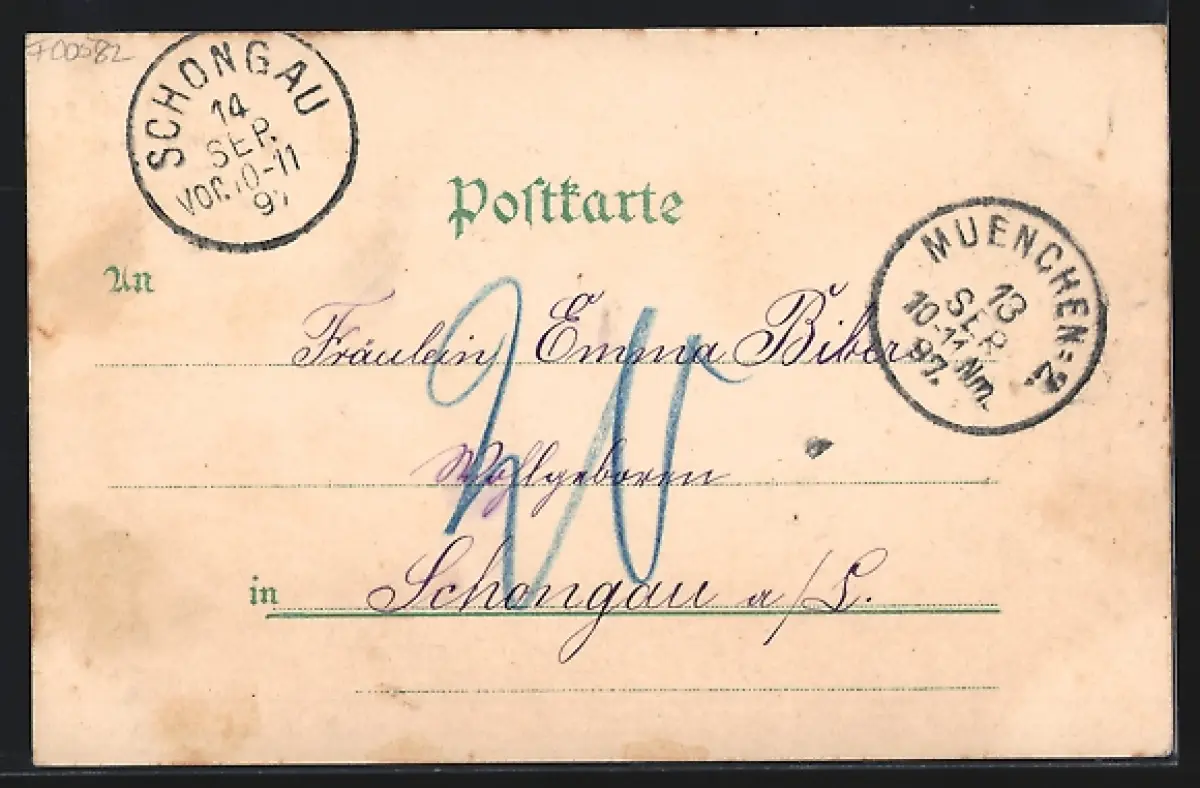 F00582
SCHONGAU
14
SEP.
Vor.10-11
97
Postkarte
MUENCHEN=2.
13
SEP.
10-11 Nm.
97.
An
Fräulein Emma Biber
20
Wohlgeboren
in Schongau a/L.